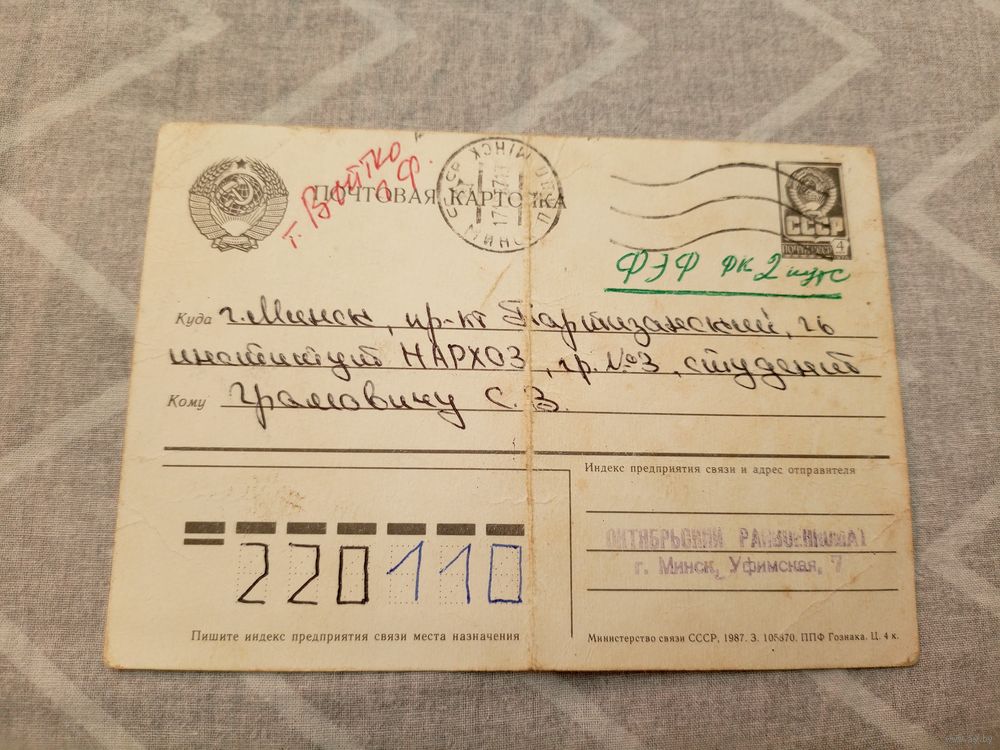 т. Войтко
ПОЧТОВАЯ КАРТОЧКА
МІНСК
МИНСК
17
СССР
ПОЧТА СССР
4
ФЭФ ФК 2 курс
Куда г. Минск, пр-кт Партизанский, 26
институт НАРХОЗ, гр. №3, студент
Кому Грамовичу С. В.
Индекс предприятия связи и адрес отправителя
ОКТЯБРЬСКИЙ РАЙВОЕНКОМАТ
г. Минск, Уфимская, 7
220110
Пишите индекс предприятия связи места назначения
Министерство связи СССР, 1987. З. 105870. ППФ Гознака. Ц. 4 к.